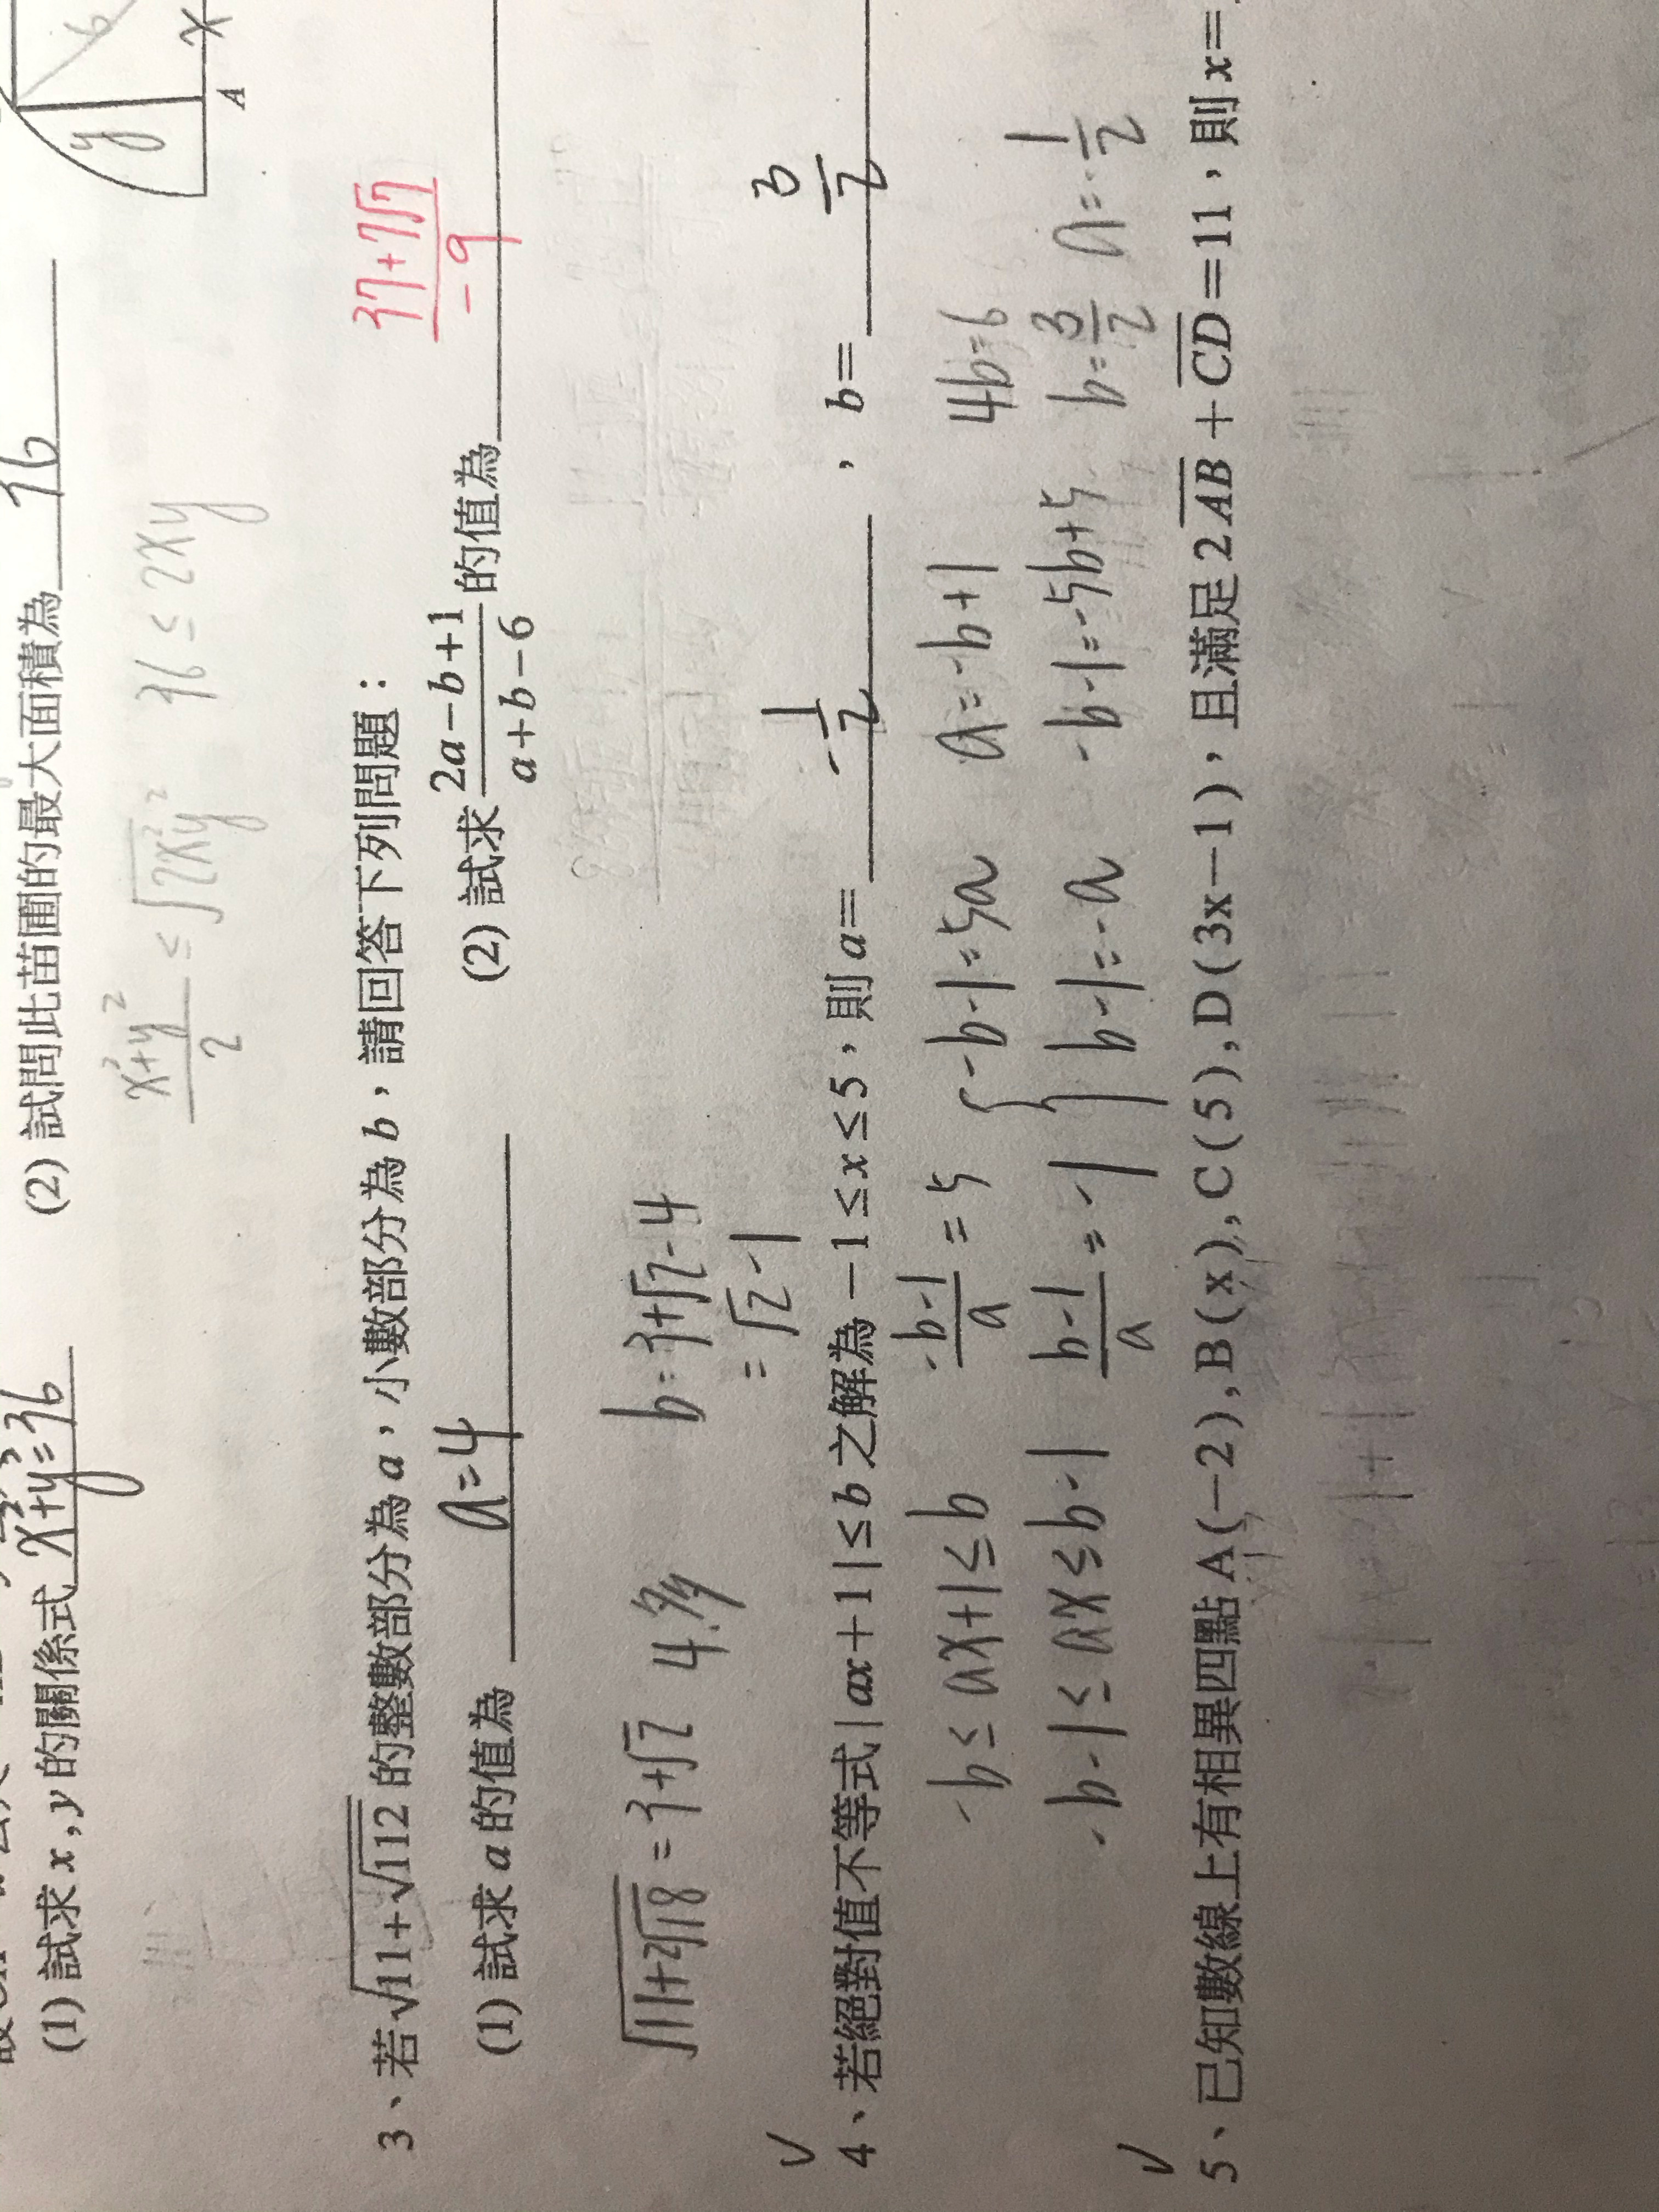 y
6
A
x
(1) 試求 x , y 的關係式 x²+y²=36
(2) 試問此苗圃的最大面積為 16
x²+y²/2 ≤ √2x²y²
36 ≤ 2xy
3、若 √11+√112 的整數部分為 a，小數部分為 b，請回答下列問題：
(1) 試求 a 的值為 a=4
(2) 試求 2a−b+1/a+b−6 的值為 37+7√7/-9
√11+2√18 = 3+√2 4.多
b=3+√2-4
=√2-1
4、若絕對值不等式 | ax+1 | ≤ b 之解為 −1 ≤ x ≤ 5，則 a= -1/2 ，b= 3/2
-b ≤ ax+1 ≤ b
-b-1/a = 5
{ -b-1=5a
a=-b+1
4b=6
-b-1 ≤ ax ≤ b-1
b-1/a = -1
b-1=-a
-b-1=-5b+5
b=3/2 a=-1/2
5、已知數線上有相異四點 A (−2) , B ( x ) , C ( 5 ) , D ( 3x−1 )，且滿足 2AB + CD = 11，則 x=